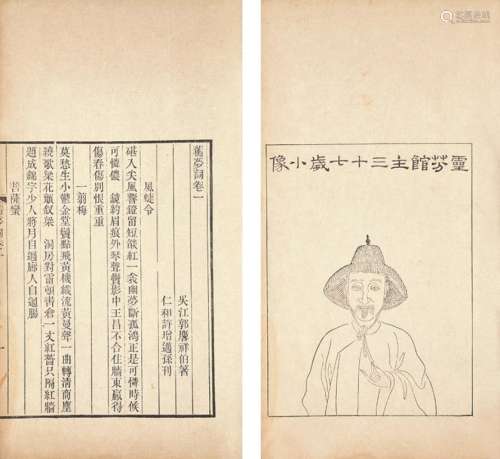 靈芬館主三十七歲小像
蘅夢詞卷一
吳江郭麐祥伯著
仁和許增邁孫刊
風蝶令
碪入尖風響鐙留短燄紅一衾幽夢斷孤鴻正是可憐時候
可憐儂 鏡約眉痕外琴聲鬢影中王昌不合住牆東贏得
傷春傷別恨重重
一翦梅
莫愁生小鬱金堂鬢點飛黃機織流黃曼聲一曲轉清商塵
繞歌梁花颭釵梁 洞房對霤頓書倉一丈紅薔只隔紅牆
題成錦字少人將月自迴廊人自迴腸
菩薩蠻